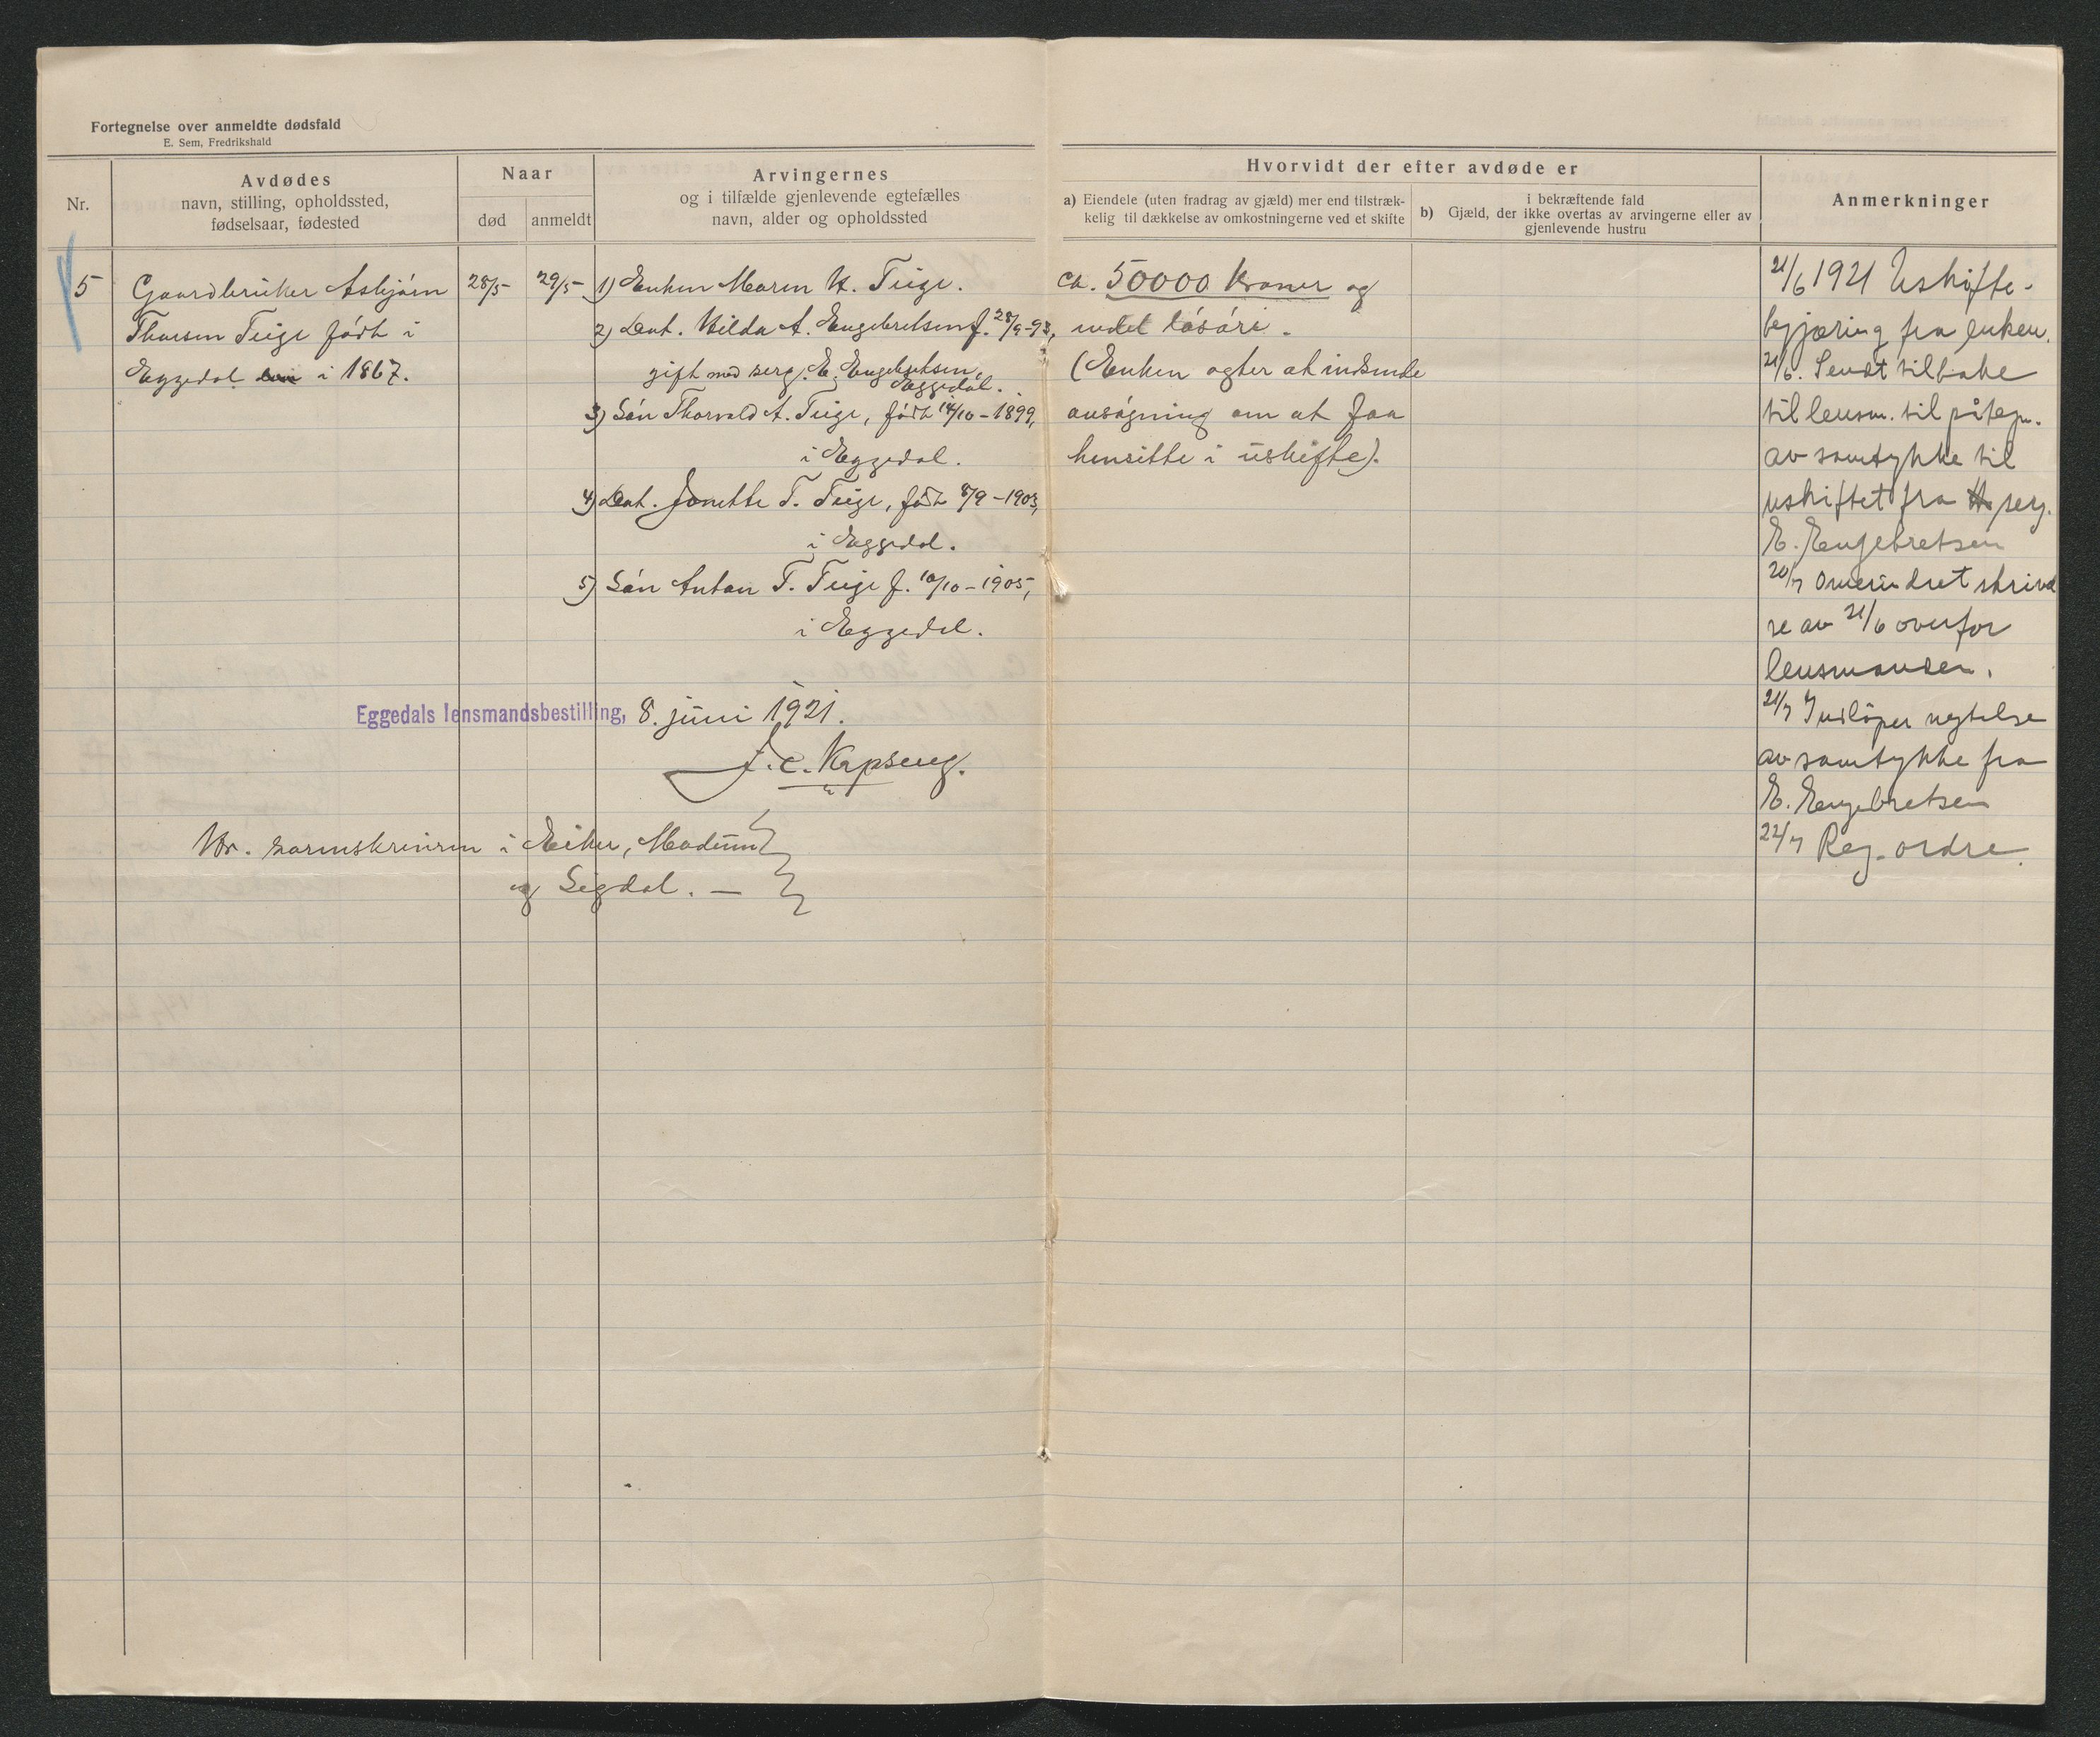 Fortegnelse over anmeldte dødsfald
E. Sem, Fredrikshald
Nr.
Avdødes
navn, stilling, opholdssted,
fødselsaar, fødested
Naar
død
anmeldt
Arvingernes
og i tilfælde gjenlevende egtefælles
navn, alder og opholdssted
Hvorvidt der efter avdøde er
a) Eiendele (uten fradrag av gjæld) mer end tilstræk-
kelig til dækkelse av omkostningerne ved et skifte
b) Gjæld, der i bekræftende fald
ikke overtas av arvingerne eller av
gjenlevende hustru
Anmerkninger
5
Gaardbruker Asbjörn
Thorsen Teige födt i
Eggedal i 1867.
28/5
29/5
1) Enken Maren K. Teige.
2) Dat. Hilda A. Engebretsen f. 28/9-93,
gift med serg. E. Engebretsen,
Eggedal.
3) Sön Thorvald A. Teige, födt 14/10-1899,
i Eggedal.
4) Dat. Jonette T. Teige, födt 8/9-1903,
i Eggedal.
5) Sön Anton T. Teige f. 10/10-1905,
i Eggedal.
Eggedals lensmandsbestilling, 8. juni 1921.
J. C. Kopseng.
Hr. sorenskriveren i Eiker, Modum
og Sigdal. —
ca. 50000 kroner og
endel lösöre.
(Enken agter at indsende
ansögning om at faa
hensitte i uskifte).
21/6 1921 Uskifte-
begjæring fra enken.
21/6. Sendt tilbake
til lensm. til påtegn.
av samtykke til
uskiftet fra serg.
E. Engebretsen
20/7 Omerindret skrivel
se av 21/6 overfor
lensmanden.
21/7 Indlöper negtelse
av samtykke fra
E. Engebretsen
22/7 Reg. ordre.